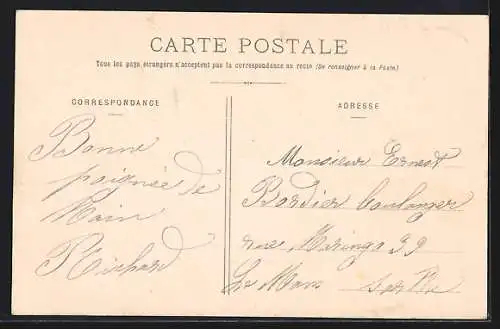 CARTE POSTALE
Tous les pays étrangers n'acceptent pas la correspondance au recto (Se renseigner à la Poste)
CORRESPONDANCE
ADRESSE
Bonne
poignée de
Main
Richard
Monsieur Ernest
Bordier boulanger
rue Maringo 39
Le Mans Sarthe